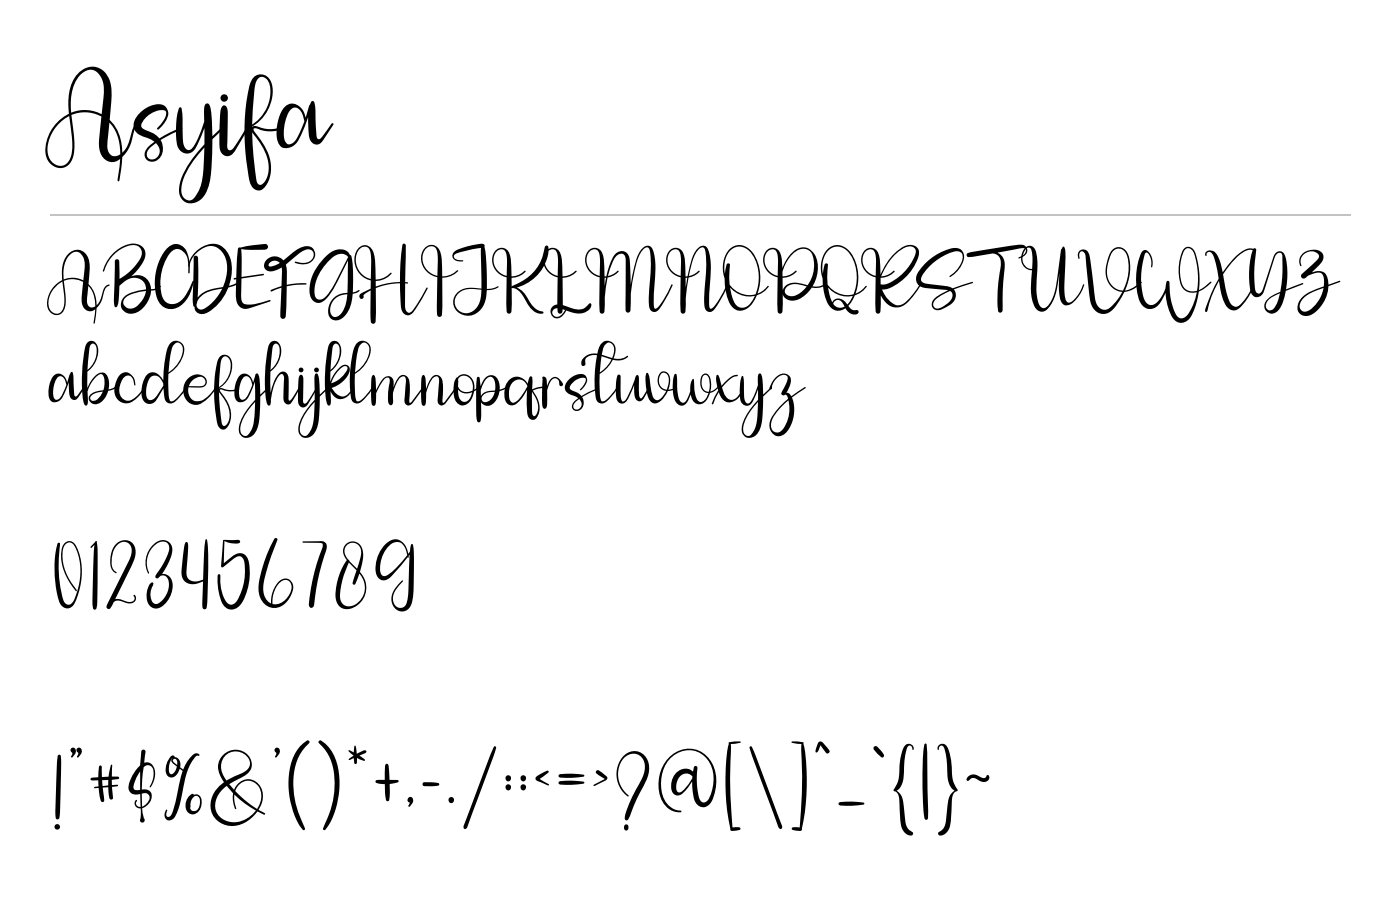 Asyifa
ABCDEFGHIJKLMNOPQRSTUVWXYZ
abcdefghijklmnopqrstuvwxyz
0123456789
!"#$%&'()*+,-./::<=>?@[\]^_`{|}~